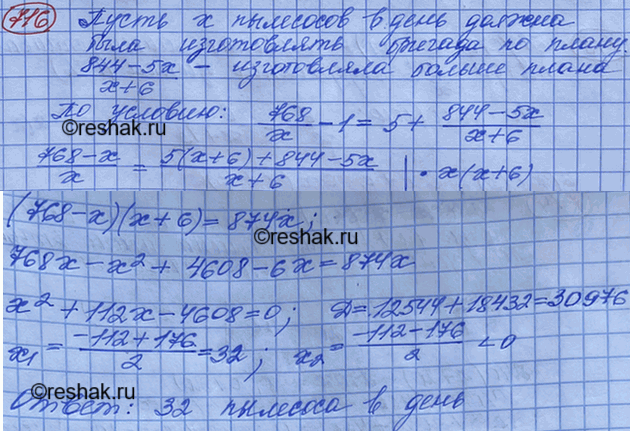 716 Пусть x пылесосов в день должна
была изготовлять бригада по плану.
(844-5x)/(x+6) - изготовляла больше плана
По условию: 768/x - 1 = 5 + (844-5x)/(x+6)
©reshak.ru
©reshak.ru
(768-x)/x = (5(x+6)+844-5x)/(x+6) | • x(x+6)
(768-x)(x+6)=874x;
©reshak.ru
768x-x²+4608-6x=874x
x²+112x-4608=0; D=12544+18432=30976
x₁ = (-112+176)/2 =32; x₂ = (-112-176)/2 <0
Ответ: 32 пылесоса в день